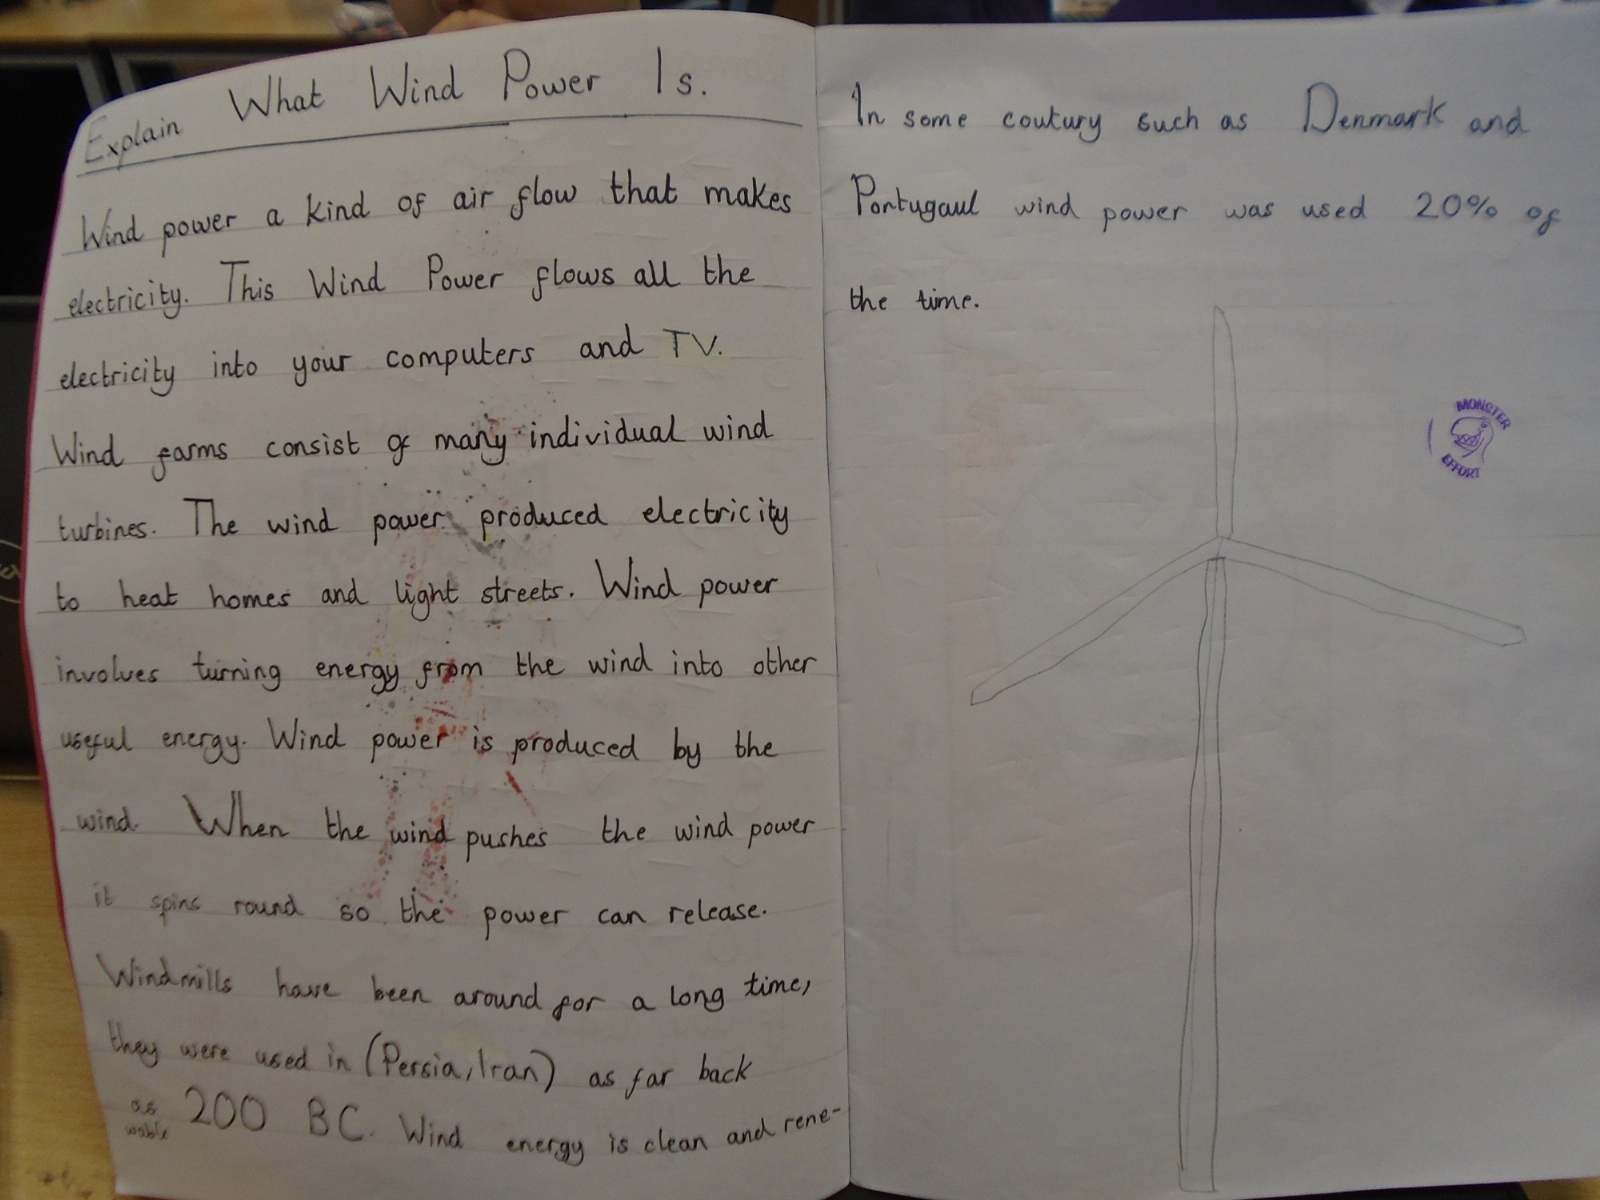 Explain What Wind Power Is.
Wind power a kind of air flow that makes
electricity. This Wind Power flows all the
electricity into your computers and TV.
Wind farms consist of many individual wind
turbines. The wind power produced electricity
to heat homes and light streets. Wind power
involves turning energy from the wind into other
useful energy. Wind power is produced by the
wind. When the wind pushes the wind power
it spins round so the power can release.
Windmills have been around for a long time,
they were used in (Persia, Iran) as far back
as 200 BC. Wind energy is clean and rene-
wable
In some coutury such as Denmark and
Portugaul wind power was used 20% of
the time.
MONSTER
EFFORT